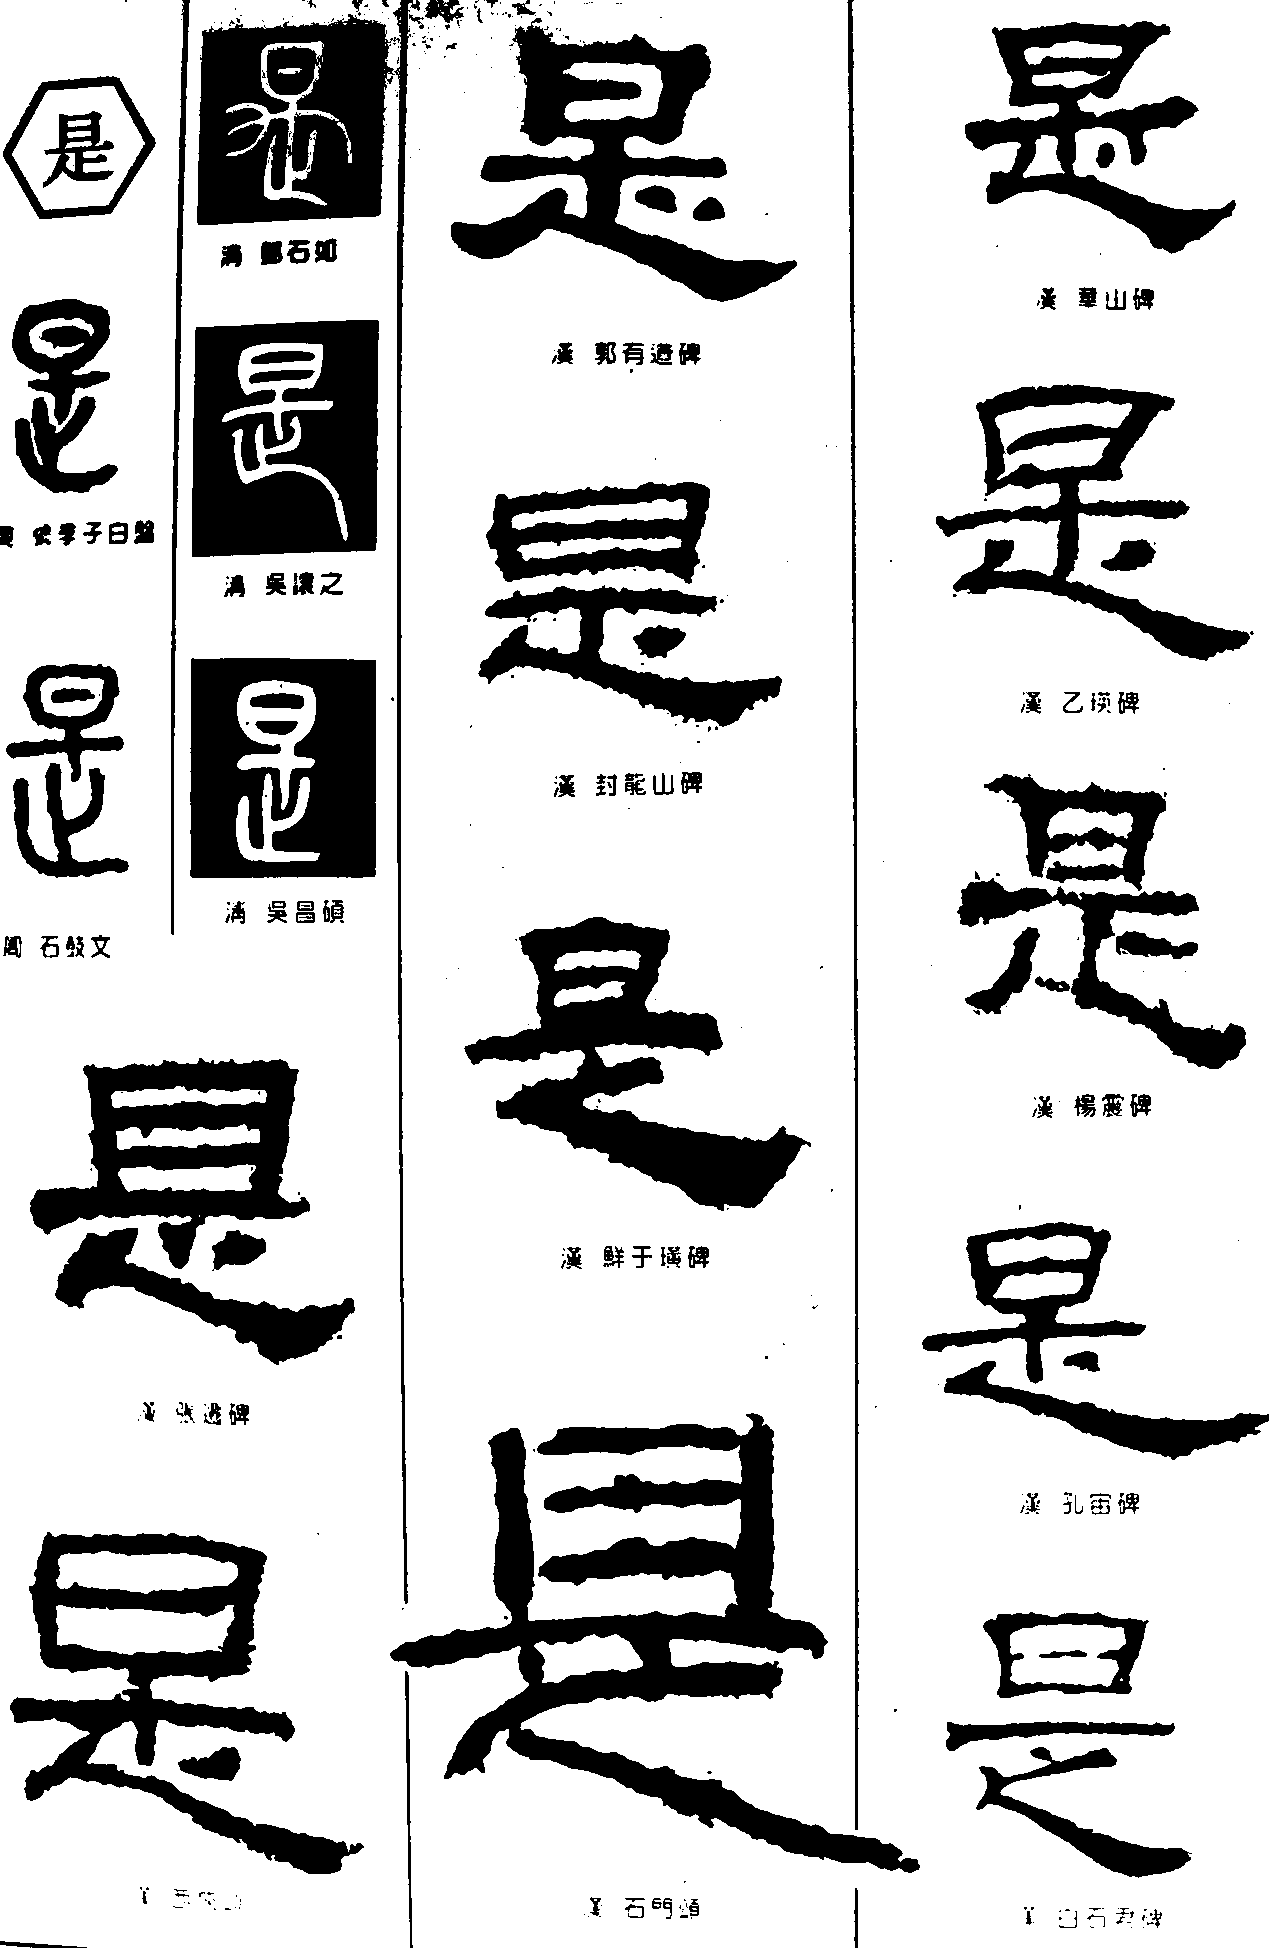 是
是
周 虢季子白盤
是
周 石鼓文
是
清 鄧石如
是
清 吳讓之
是
清 吳昌碩
是
漢 張遷碑
是
是
漢 郭有道碑
是
漢 封龍山碑
是
漢 鮮于璜碑
是
漢 石門頌
是
漢 華山碑
是
漢 乙瑛碑
是
漢 楊震碑
是
漢 孔宙碑
是
漢 白石君碑